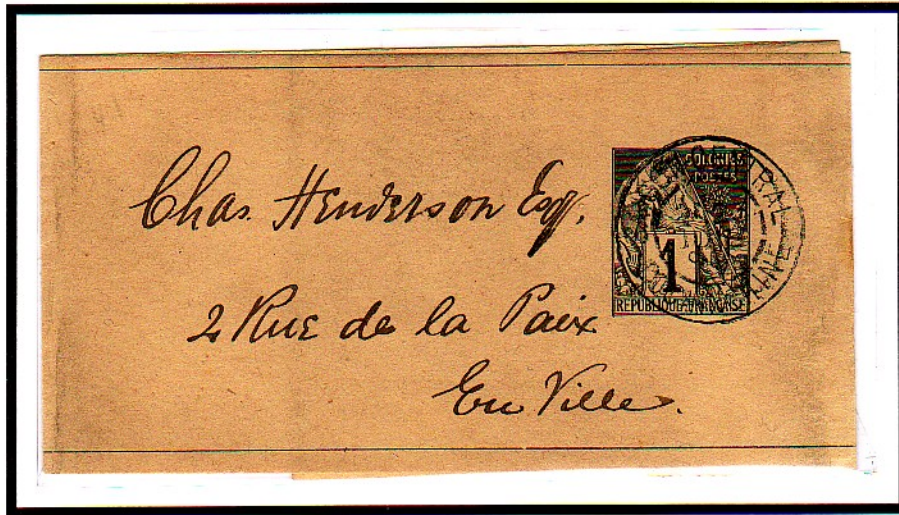 Chas. Henderson Esq.
2 Rue de la Paix
En Ville.
COLONIES
POSTES
1
REPUBLIQUE FRANÇAISE